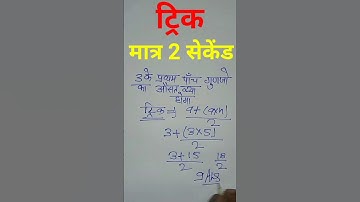 ट्रिक
मात्र 2 सेकेंड
3 के प्रथम पाँच गुणजो
का औसत क्या
होगा
ट्रिक = a+(a×n)
2
3+(3×5)
2
3+15
2
18
2
9 Ans